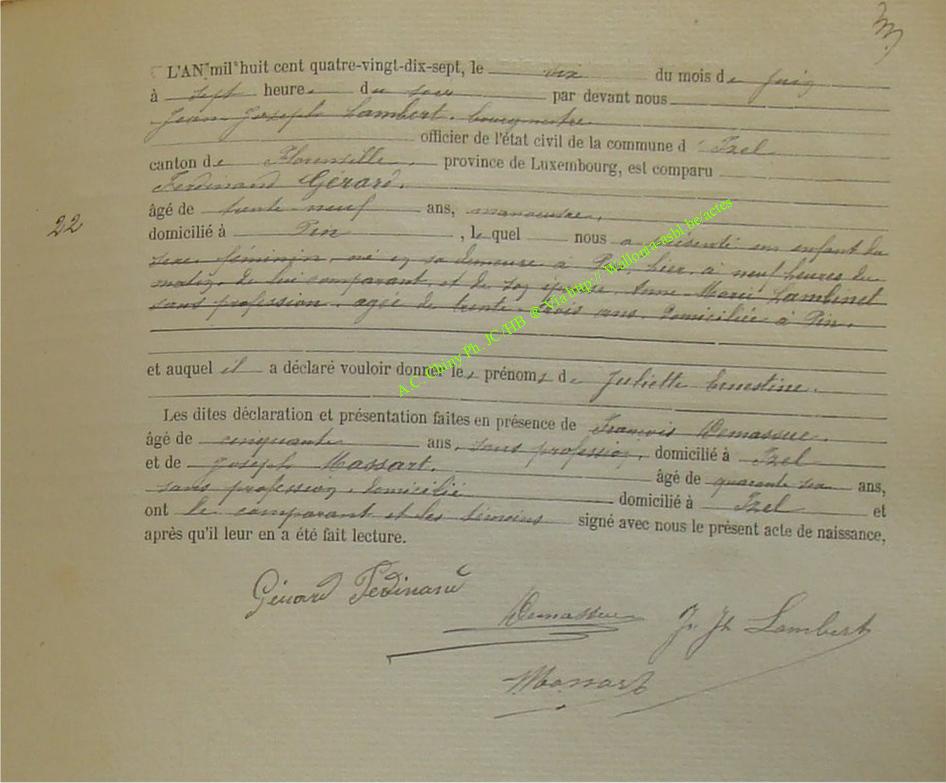 L'AN mil huit cent quatre-vingt-dix-sept, le dix du mois de juin
à sept heure du soir par devant nous
Jean Joseph Lambert, bourgmestre
officier de l'état civil de la commune d Izel
canton de Florenville, province de Luxembourg, est comparu
Ferdinand Gérard,
âgé de trente-neuf ans, manoeuvre,
22
domicilié à Pin, lequel nous a présenté un enfant du
sexe féminin, né en sa demeure à Pin, hier, à neuf heures du
matin, de lui comparant, et de son épouse, Anne Marie Lambinet
sans profession, agée de trente-trois ans, domiciliée à Pin.
et auquel il a déclaré vouloir donner les prénoms de Juliette Ernestine.
Les dites déclaration et présentation faites en présence de François Demassue.
âgé de cinquante ans, sans profession, domicilié à Izel
et de Joseph Massart. âgé de quarante ans,
sans profession, domicilié domicilié à Izel et
ont le comparant et les témoins signé avec nous le présent acte de naissance,
après qu'il leur en a été fait lecture.
Gérard Ferdinand
Demassue Jn Jh Lambert
Massart
A.C. Chiny Ph. JC/HB @ Via http:// Wallonia-asbl.be/actes